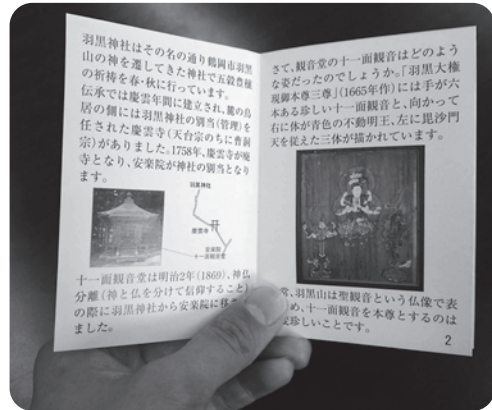 羽黒神社はその名の通り鶴岡市羽黒
山の神を遷してきた神社で五穀豊穣
の祈祷を春・秋に行っています。
伝承では慶雲年間に建立され、麓の鳥
居の側には羽黒神社の別当(管理)を
任された慶雲寺(天台宗のちに曹洞
宗)がありました。1758年、慶雲寺が廃
寺となり、安楽院が神社の別当となり
ます。
羽黒神社
慶雲寺
安楽院
十一面観音堂
十一面観音堂は明治2年(1869)、神仏
分離(神と仏を分けて信仰すること)
の際に羽黒神社から安楽院に移
ました。
さて、観音堂の十一面観音はどのよう
な姿だったのでしょうか。「羽黒大権
現御本尊三尊」(1665年作)には手が六
本ある珍しい十一面観音と、向かって
右に体が青色の不動明王、左に毘沙門
天を従えた三体が描かれています。
羽黒山は聖観音という仏像で表
め、十一面観音を本尊とするのは
珍しいことです。
2